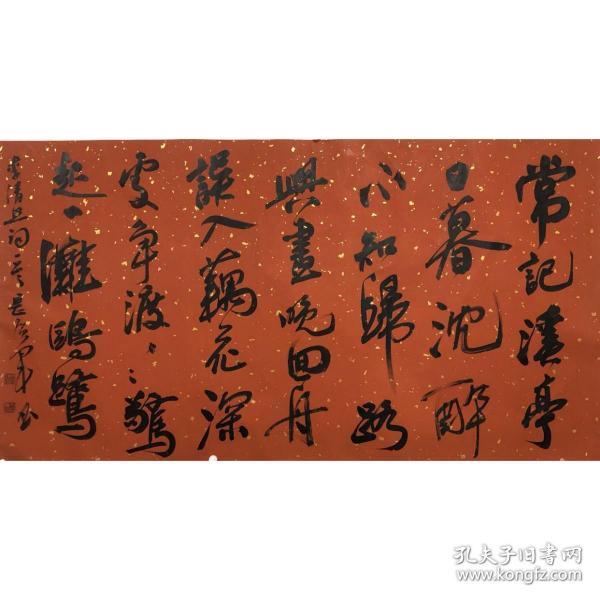 常記溪亭
日暮沈醉
不知歸路
興盡晚回舟
誤入藕花深
處爭渡〻驚
起一灘鷗鷺
李清照詞
孔夫子旧书网
www.kongfz.com